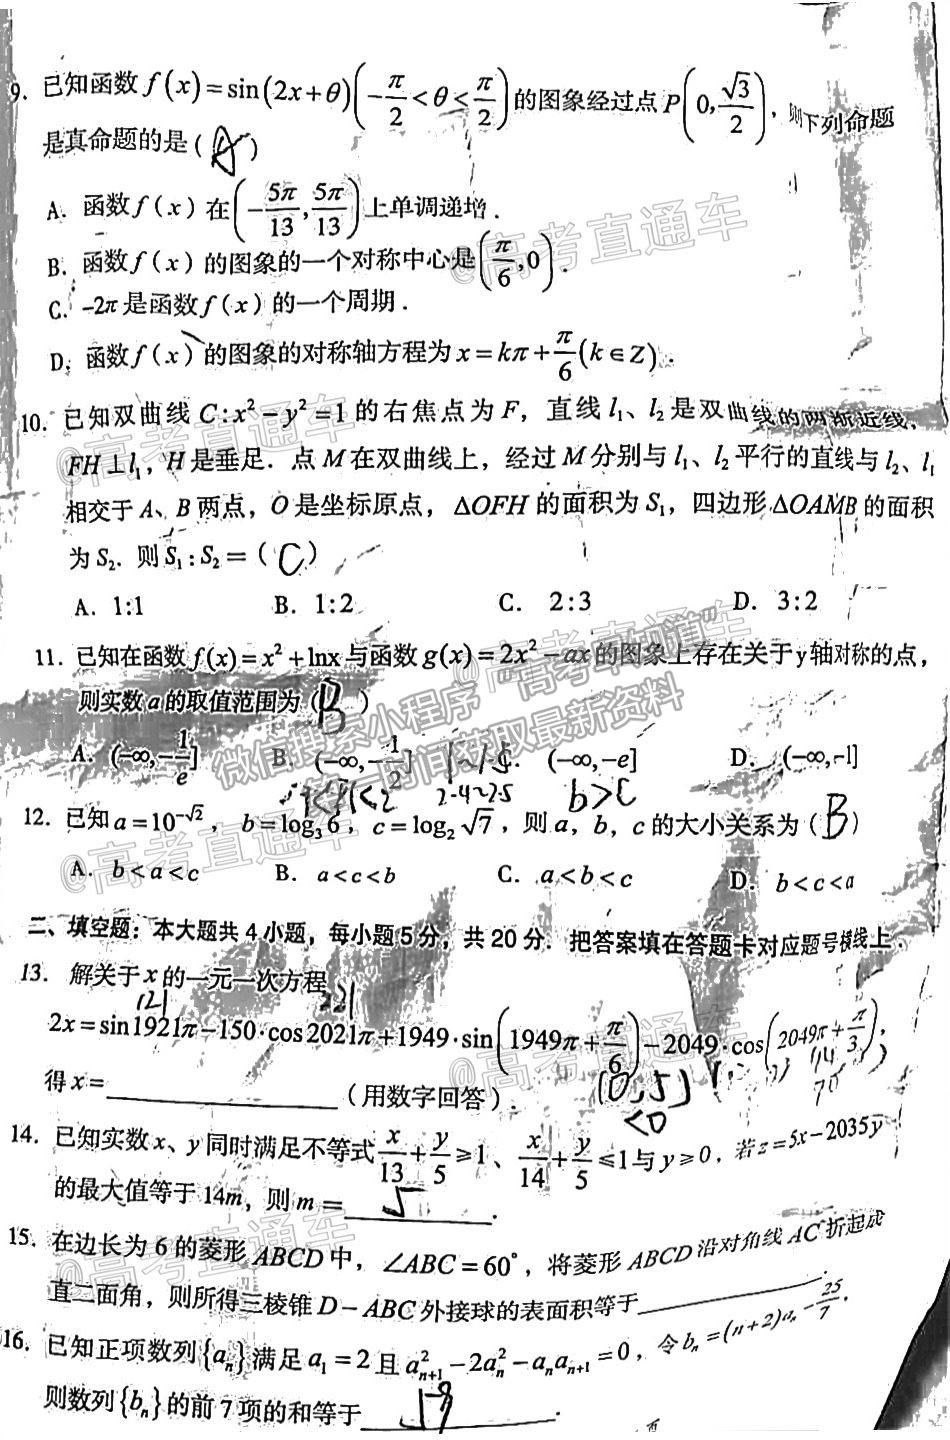 9. 已知函数 f(x)=sin(2x+θ)(-π/2<θ<π/2)的图象经过点P(0,√3/2)，则下列命题
是真命题的是( A )
A. 函数f(x)在(-5π/13,5π/13)上单调递增.
B. 函数f(x)的图象的一个对称中心是(π/6,0).
C. -2π是函数f(x)的一个周期.
D. 函数f(x)的图象的对称轴方程为x=kπ+π/6(k∈Z).
10. 已知双曲线 C:x²-y²=1的右焦点为F，直线l₁、l₂是双曲线的两渐近线，
FH⊥l₁，H是垂足.点M在双曲线上，经过M分别与l₁、l₂平行的直线与l₂、l₁
相交于A、B两点，O是坐标原点，△OFH的面积为S₁，四边形△OAMB的面积
为S₂. 则S₁:S₂=( C )
A. 1:1 B. 1:2 C. 2:3 D. 3:2
11. 已知在函数f(x)=x²+lnx与函数g(x)=2x²-ax的图象上存在关于y轴对称的点，
则实数a的取值范围为( B )
A. (-∞,-1/e] B. (-∞,-1/2] C. (-∞,-e] D. (-∞,-1]
2.4~2.5 b>c
12. 已知a=10^(-√2)，b=log₃6，c=log₂√7，则a，b，c的大小关系为( B )
A. b<a<c B. a<c<b C. a<b<c D. b<c<a
二、填空题：本大题共4小题，每小题5分，共20分.把答案填在答题卡对应题号横线上.
13. 解关于x的一元一次方程
2x=sin1921π-150·cos2021π+1949·sin(1949π+π/6)-2049·cos(2049π+π/3)，
得x=____________(用数字回答).
[0,5]
<0
14. 已知实数x、y同时满足不等式x/13+y/5≥1、x/14+y/5≤1与y≥0，若z=5x-2035y
的最大值等于14m，则m=  5  .
15. 在边长为6的菱形ABCD中，∠ABC=60°，将菱形ABCD沿对角线AC折起成
直二面角，则所得三棱锥D-ABC外接球的表面积等于____________.
16. 已知正项数列{aₙ}满足a₁=2且aₙ₊₁²-2aₙ²-aₙaₙ₊₁=0，令bₙ=(n+2)aₙ-25/7.
则数列{bₙ}的前7项的和等于____________.
@高考直通车
@高考直通车
@高考直通车
微信搜索小程序"高考直通车"
第一时间获取最新资料
@高考直通车
@高考直通车
@高考直通车